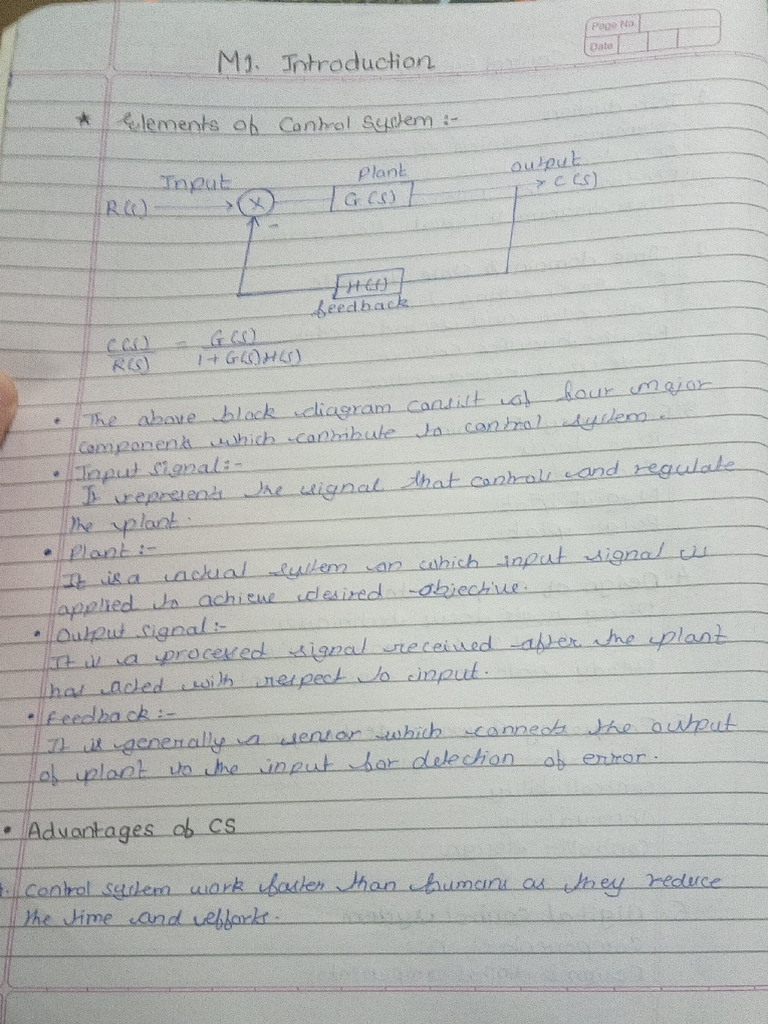 Page No.
Date
M1. Introduction
* Elements of Control System :-
Input
Plant
output
R(s)
X
G(s)
C(s)
-
H(s)
feedback
C(s)/R(s) = G(s)/1+G(s)H(s)
• The above block diagram consist of four major
components which contribute to control system.
• Input signal:-
It represents the signal that controls and regulate
the plant.
• Plant :-
It is a actual system on which input signal is
applied to achieve desired objective.
• Output signal:-
It is a processed signal received after the plant
has acted with respect to input.
• Feedback :-
It is generally a sensor which connects the output
of plant to the input for detection of error.
• Advantages of CS
1. Control system work faster than humans as they reduce
the time and efforts.